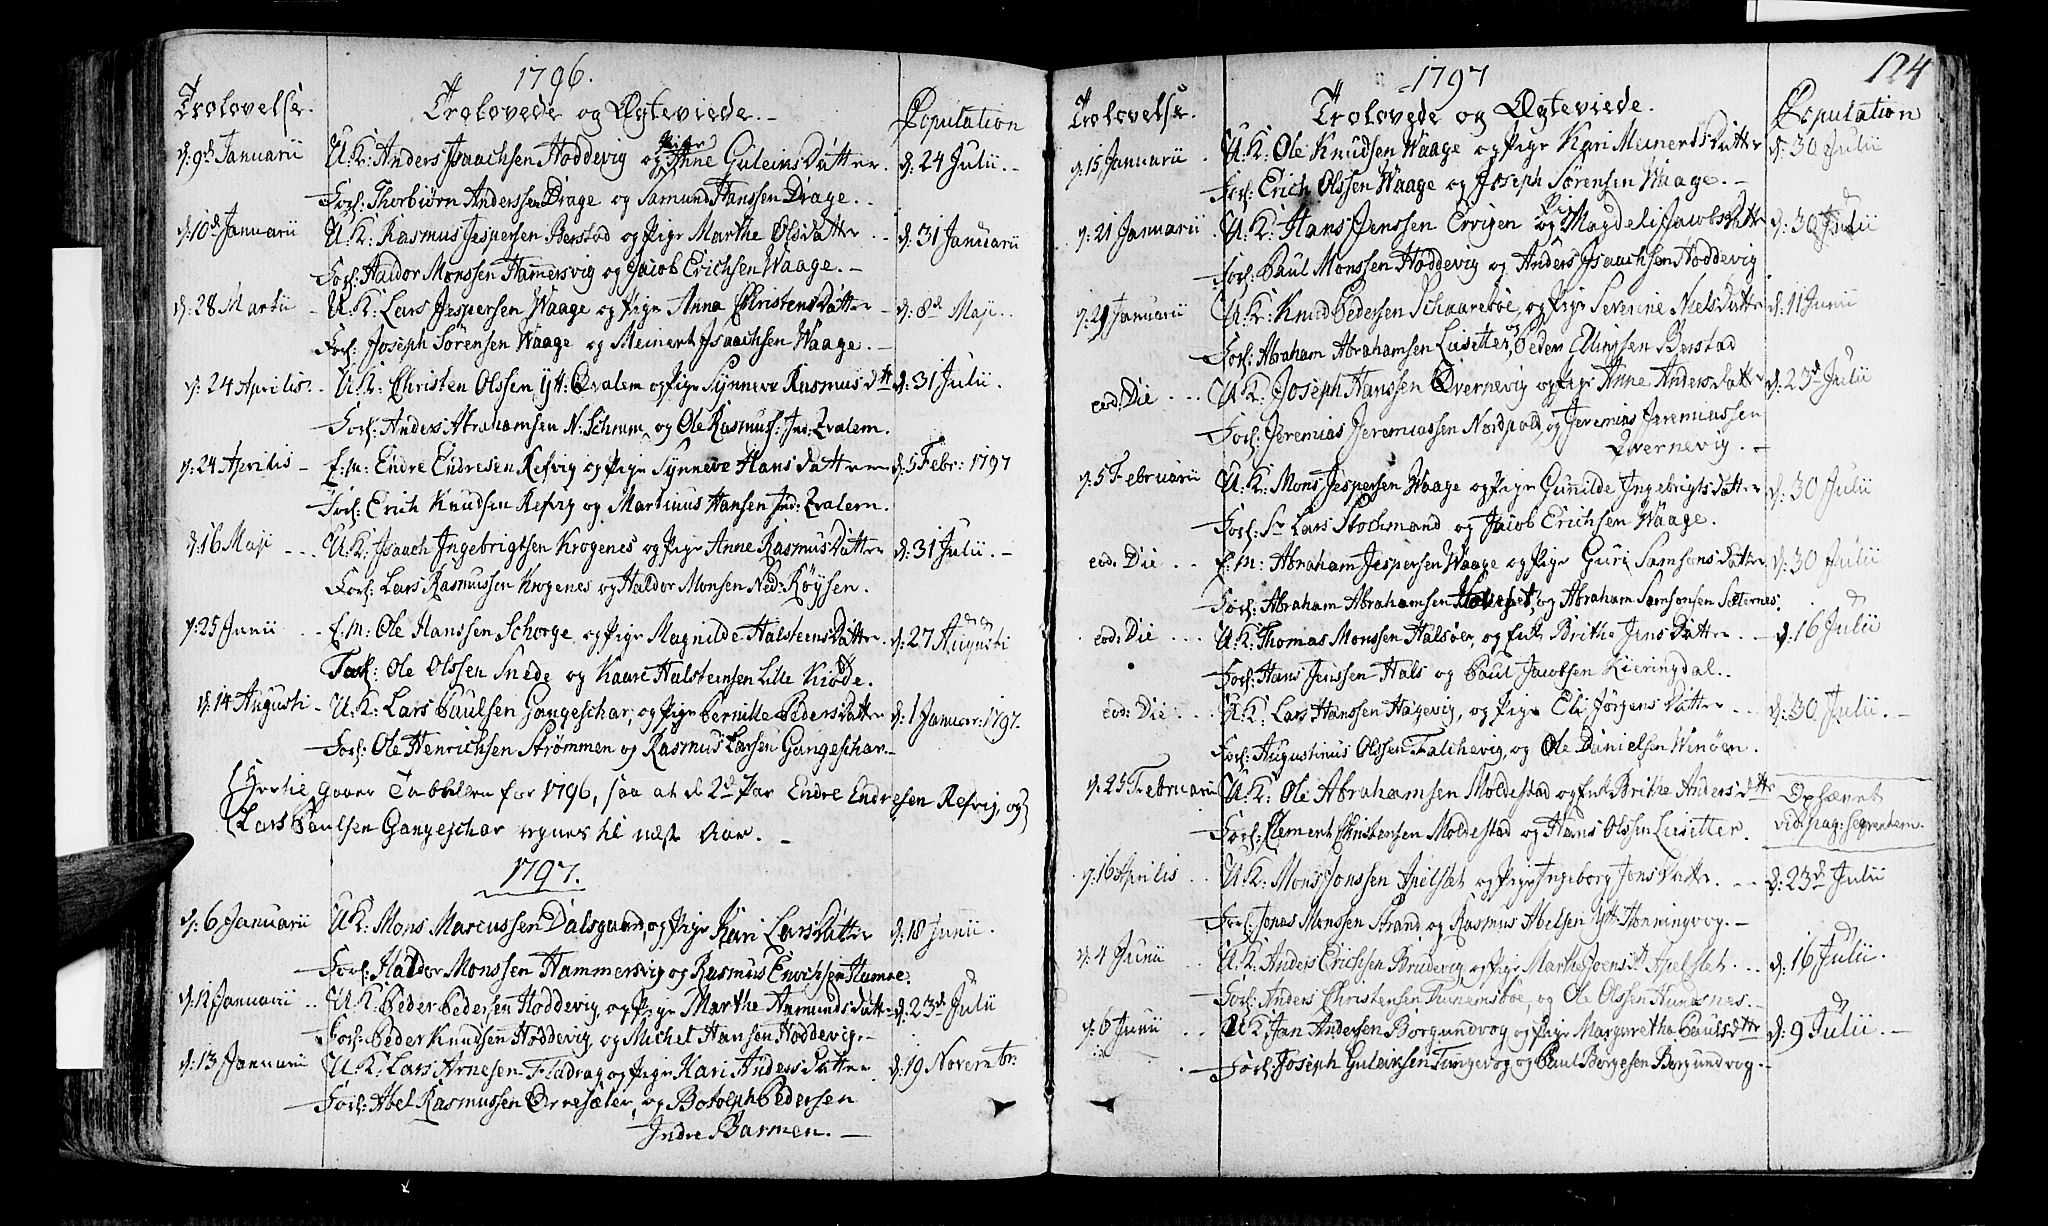 1796.
Trolovelse. Trolovede og Ægteviede. Copulation
d: 9d Januarii U: K: Anders Isaachsen Hoddevig og Pige Anne GuleinsDatter. d: 24 Julii.
Forl: Thorbiörn Anderssen Drage og Samund Hanssen Drage.
d: 10d Januarii U: K: Rasmus Jespersen Berstad og Pige Marthe OlsDatter d: 31 Januarii
Forl: Haldor Monssen Hamersvig og Jacob Erichsen Waage.
d: 28 Martii U: K: Lars Jespersen Waage og Pige Anna ChristensDatter d: 8d Maji
Forl: Joseph Sörensen Waage og Meinert Isaachsen Waage.
d: 24 Aprilis U: K: Christen Olssen Yt: Qvalem og Pige Synneve Rasmus dtt d: 31 Julii.
Forl: Anders Abrahamsen N: Schram og Ole Rasmuss: Ind: Qvalem.
d: 24 Aprilis E: M: Endre Endresen Refvig og Pige Synneve HansDatter d: 5 Febr: 1797
Forl: Erich Knudsen Refvig og Martinus Hansen Ind: Qvalem.
d: 16 Maji U: K: Isaach Ingebrigtsen Krogenes og Pige Anne RasmusDatter d: 31 Julii.
Forl: Lars Rasmussen Krogenes og Haldor Monsen Ned: Röysen.
d: 25 Junii E: M: Ole Hanssen Schorge og Pige Magnilde HalsteensDatter. d: 27 Augusti
Forl: Ole Olssen Snede og Kaare Halsteinsen Lille Kiöde.
d: 14 Augusti U: K: Lars Paulsen Gangeschar, og Pige Pernille PedersDatter d: 1 Januar: 1797.
Forl: Ole Henrichsen Strömmen og Rasmus Larsen Gangeschar.
Hertil gaaer Tabellen for 1796, saa at de 2de Par Endre Endresen Refvig, og
Lars Paulsen Gangeschar regnes til næst Aar.
1797.
d: 6 Januarii U: K: Mons Marcussen Dalsgaard, og Pige Kari LarsDatter d: 18 Junii.
Forl: Haldor Monssen Hammersvig og Rasmus Enochsen Humoe.
d: 12 Januarii U: K: Peder Pedersen Hoddevig og Pige Marthe AamundsDatter d: 23d Julii
Forl: Peder Knudsen Hoddevig og Michel Hansen Hoddevig.
d: 13 Januarii U: K: Lars Arnesen Fladrag og Pige Kari AndersDatter d: 19 Novembr:
Forl: Abel Rasmussen Örnesæter, og Botolph Pedersen
Indre Barmen.
124
1797
Trolovelse. Trolovede og Ægteviede. Copulation
d: 15 Januarii U: K: Ole Knudsen Waage og Pige Kari MeinertsDatter d: 30 Julii
Forl: Erich Olssen Waage og Joseph Sörensen Waage.
d: 21 Januarii U: K: Hans Jenssen Ervigen og Pige Magdeli JacobsDatter d: 30 Julii
Forl: Paul Monssen Hoddevig og Anders Isaachsen Hoddevig
d: 29 Januarii U: K: Knud Pedersen Schaareböe, og Pige Severine NielsDatter d: 11 Junii
Forl: Abraham Abrahamsen Liisetter, og Peder Ellingsen Berstad
eod: Die U: K: Joseph Hanssen Qvernevig og Pige Anne AndersDatter d: 23d Julii
Forl: Jeremias Jeremiassen Nordpold, og Jeremias Jeremiassen
Qvernevig.
d: 5 Februarii U: K: Mons Jespersen Waage og Pige Gunilde IngebrigtsDatter d: 30 Julii
Forl: Sr Lars Stochmand og Jacob Erichsen Waage.
eod: Die E: M: Abraham Jespersen Waage og Pige Guri SamsonsDatter d: 30 Julii
Forl: Abraham Abrahamsen og Abraham Samsonsen Setternes.
eod: Die U: K: Thomas Monssen Halsöer, og Enk: Brithe JensDatter d: 16 Julii
Forl: Hans Jenssen Hals og Paul Jacobsen Kieringdal.
eod: Die U: K: Lars Hanssen Hagevig, og Pige Eli JörgensDatter d: 30 Julii.
Forl: Augustinus Olssen Falchevig, og Ole Danielsen Winöen.
d: 25 Februarii U: K: Ole Abrahamsen Moldestad og Enk Brithe Anders dtter Ophævet
Forl: Clement Christensen Moldestad og Hans Olssen Liisetter. vid: pag: seqventem.
d: 16 Aprilis U: K: Mons Jonssen Apelset og Pige Ingeborg JonsDatter. d: 23d Julii
Forl: Jonas Monssen Strand og Rasmus Abelsen Ytt: Honningvog.
d: 4 Junii U: K: Anders Erichsen Brudevig og Pige Marthe Joens dt Apelset d: 16 Julii.
Forl: Anders Christensen Tunemsböe, og Ole Olssen Hundsnes.
d: 6 Junii U: K: Jan Andersen Borgundvog og Pige Margaretha Pauls dtter d: 9 Julii.
Forl: Joseph Guleiksen Tungevog og Paul Börgesen Borgundvog.